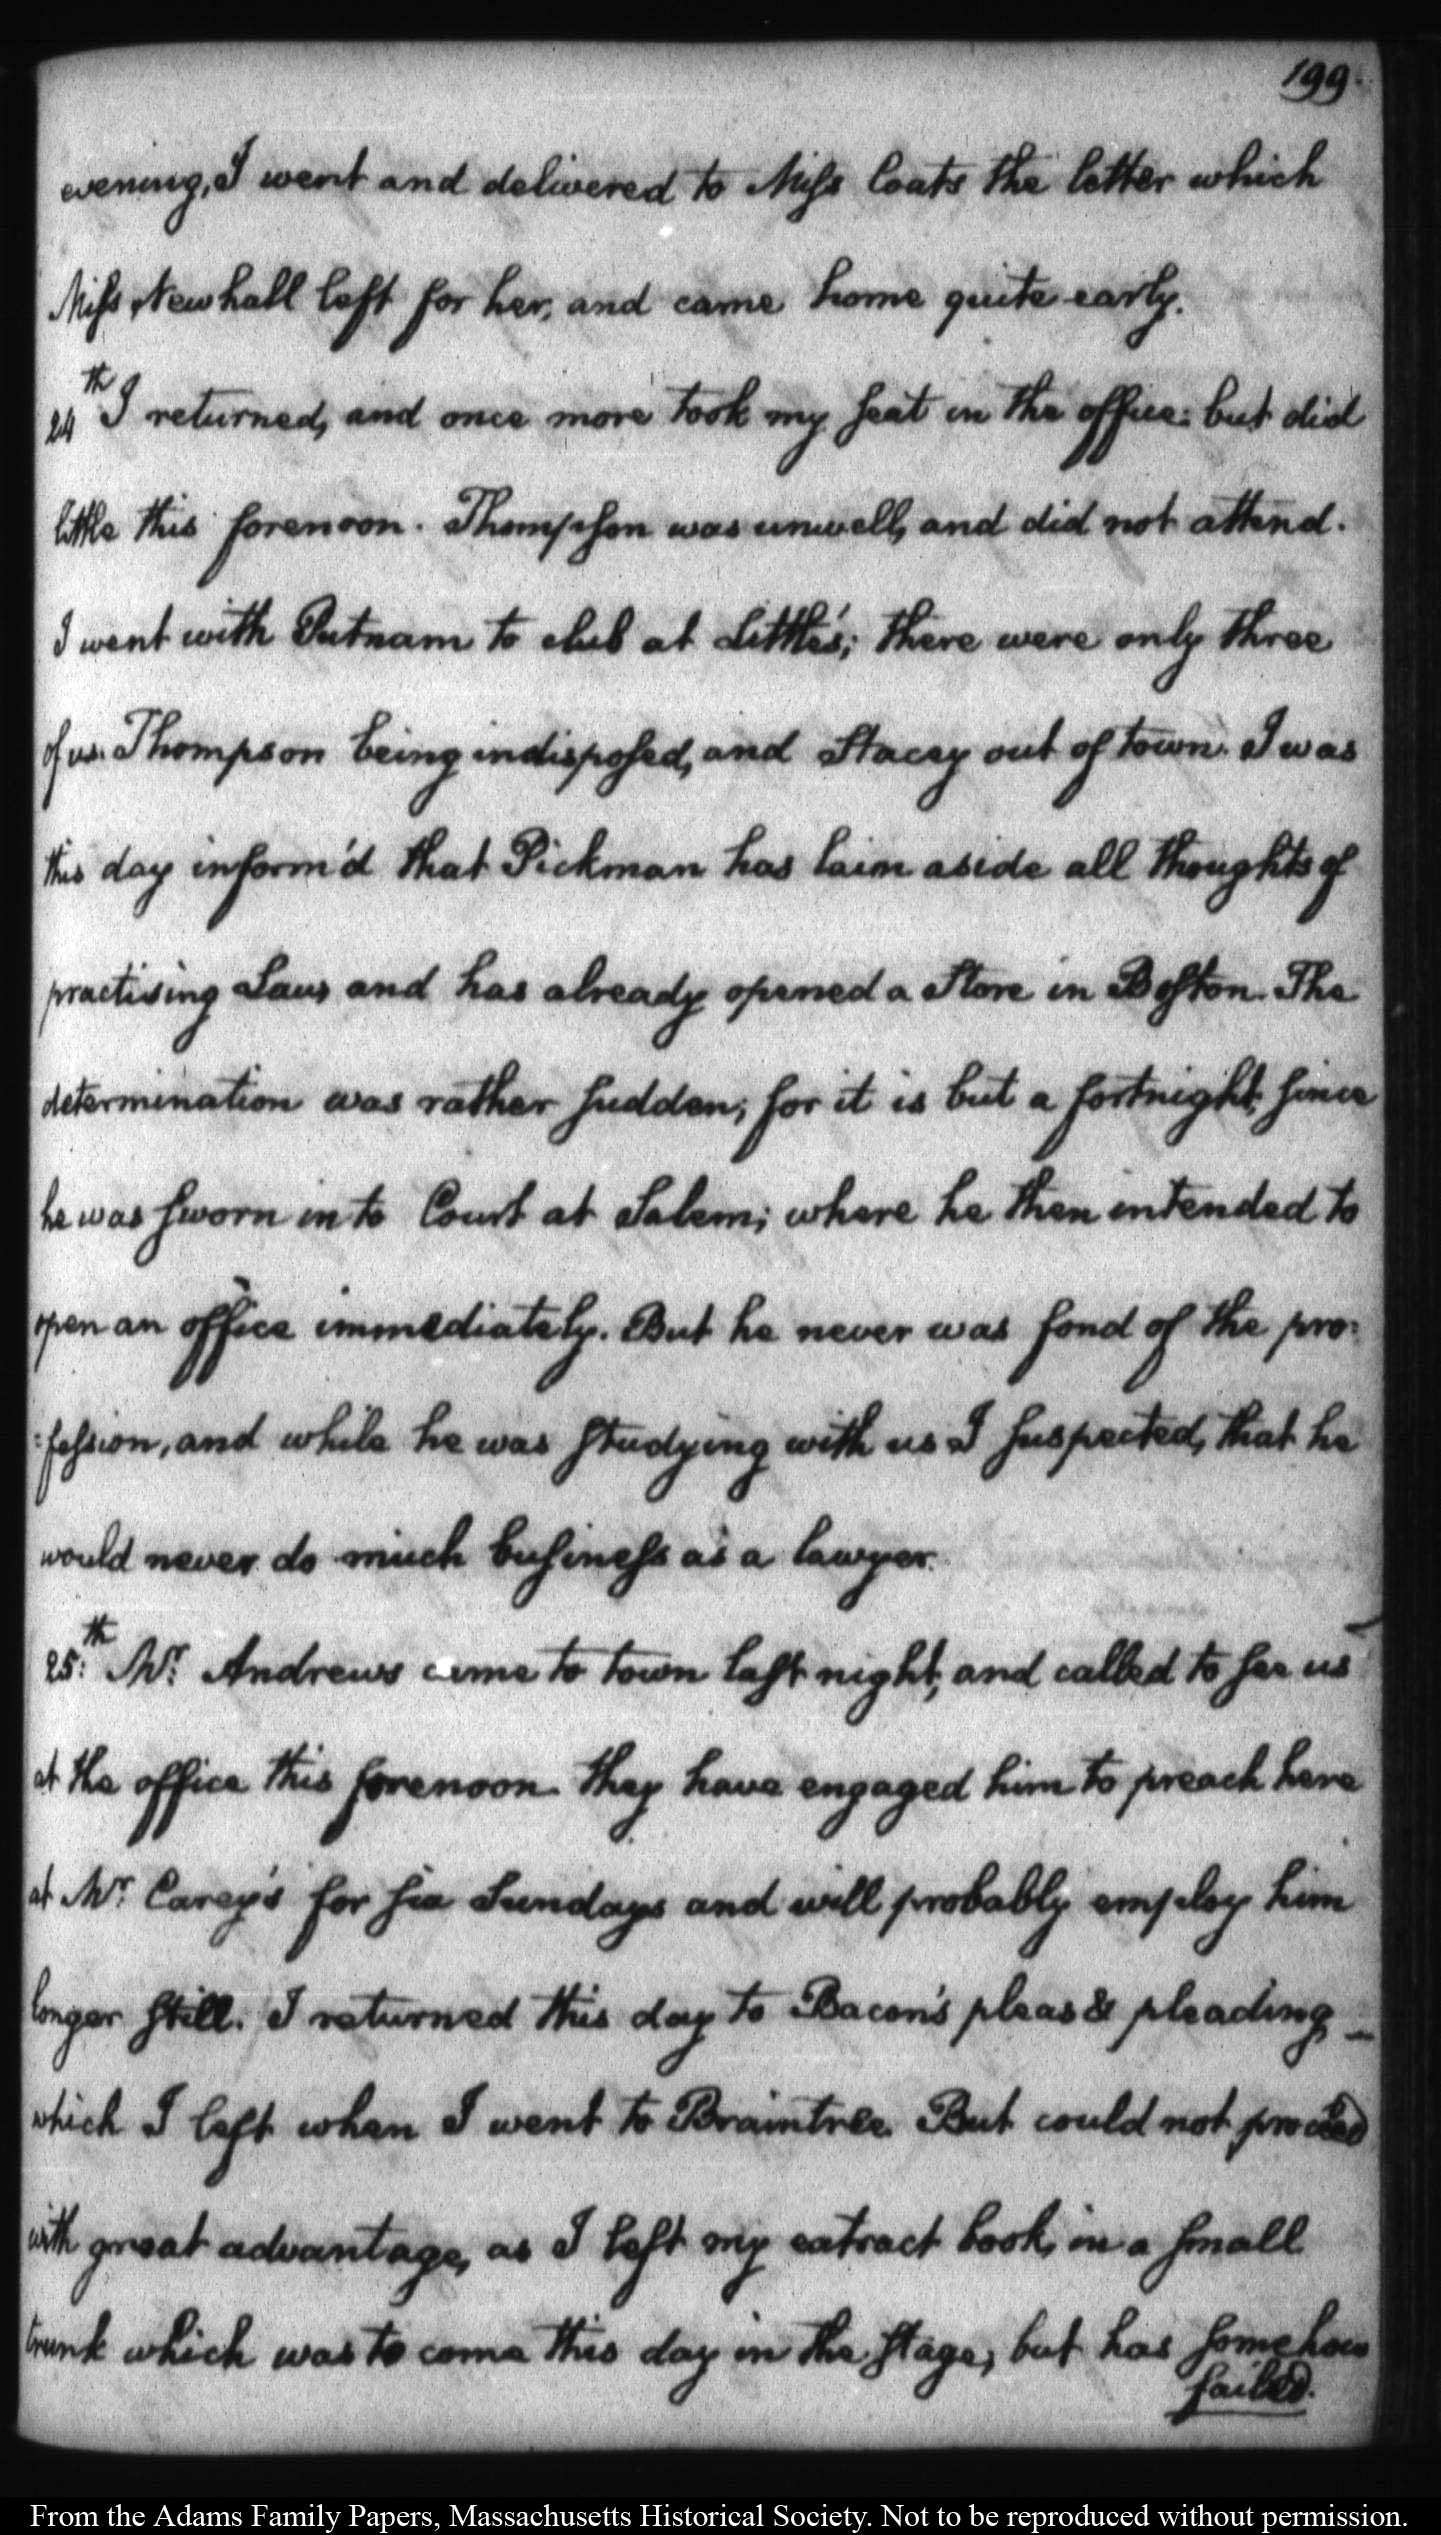 199.
evening, I went and delivered to Miss Coats the letter which
Miss Newhall left for her, and came home quite early.
24th I returned, and once more took my seat in the office: but did
little this forenoon. Thompson was unwell, and did not attend.
I went with Putnam to club at Little's; there were only three
of us. Thompson being indisposed, and Stacey out of town. I was
this day inform'd that Pickman has laim aside all thoughts of
practising Law, and has already opened a Store in Boston. The
determination was rather sudden; for it is but a fortnight, since
he was sworn in to Court at Salem; where he then intended to
open an office immediately. But he never was fond of the pro:
:fession, and while he was studying with us I suspected, that he
would never do much business as a lawyer.
25:th Mr. Andrews came to town last night, and called to see us
at the office this forenoon. they have engaged him to preach here
at Mr. Carey's for six Sundays and will probably employ him
longer still. I returned this day to Bacon's pleas & pleading,
which I left when I went to Braintree. But could not proceed
with great advantage, as I left my extract book, in a small
trunk which was to come this day in the stage, but has somehow
failed.
From the Adams Family Papers, Massachusetts Historical Society. Not to be reproduced without permission.